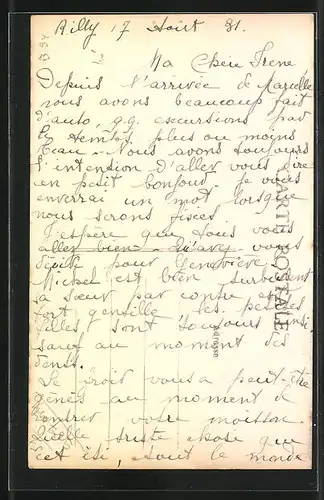 Ailly 17 Août 31.
Ma Chère Irene
Depuis l'arrivée de Marcelle
nous avons beaucoup fait
d'auto, q.q. excursions par
le temps plus ou moins
beau - Nous avons toujours
l'intension d'aller vous dire
un petit bonjour je vous
enverrai un mot lorsque
nous serons fixés.
J'espère que tous vous
aller bien -
pour Geneviève
Michel est bien turbulent
sa sœur par contre est
fort gentille les petites
filles sont toujours ainsi
sauf au moment des
dents.
Le froid vous a peut-être
gênés au moment de
rentrer votre moisson.
Quelle triste chose que
cet été, tout le monde
CARTE POSTALE
Adresse